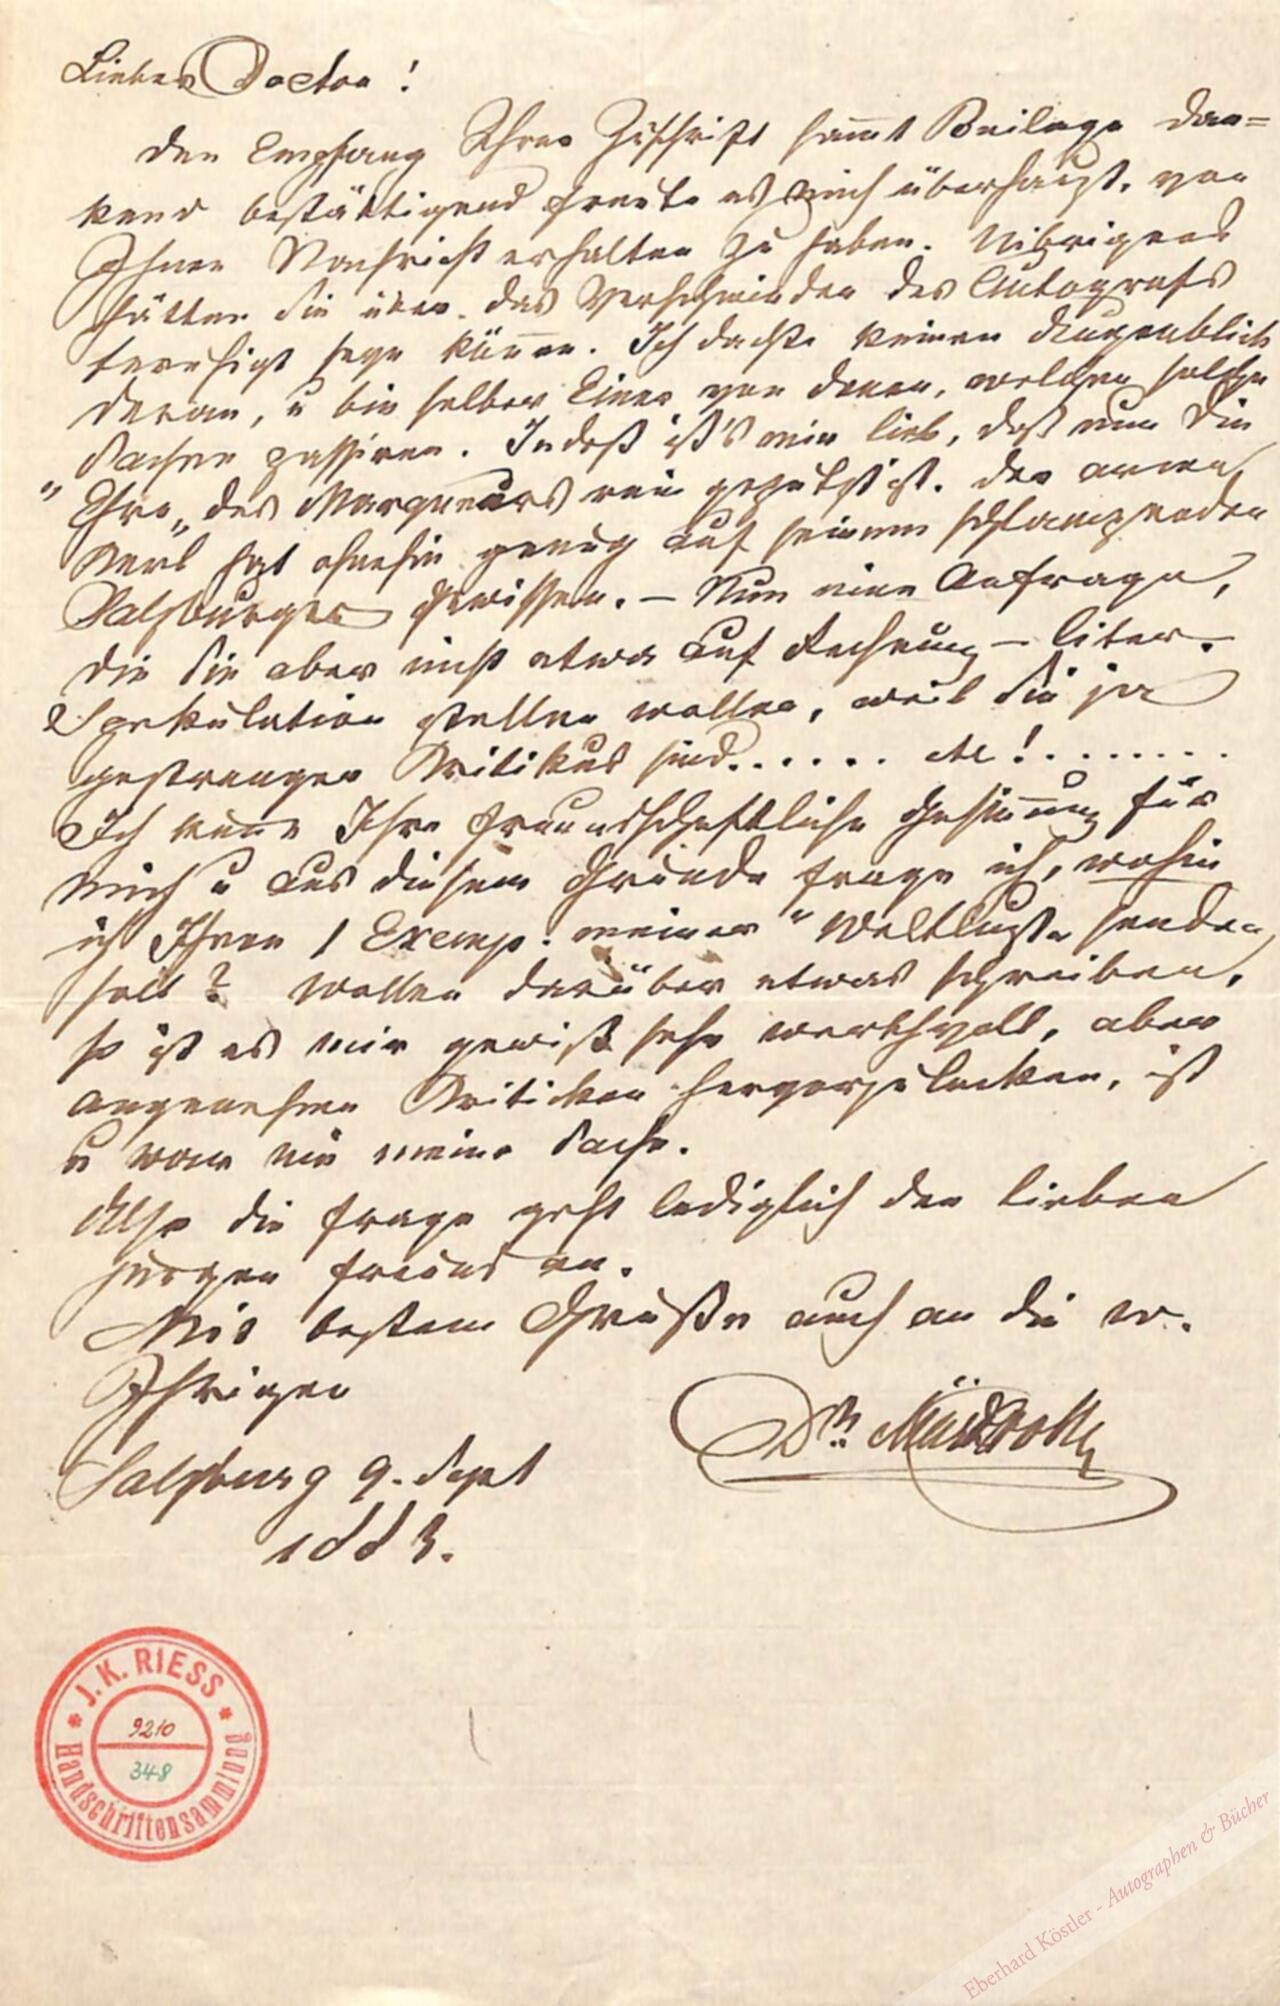 Lieber Doctor!
Den Empfang Ihrer Zuschrift sammt Beilage dan=
kend bestättigend freute es mich überhaupt, von
Ihnen Nachricht erhalten zu haben. Uibrigens
hätten Sie über das Verschwinden des Autografs
beruhigt seyn können. Ich dachte keinen Augenblick
daran, u bin selber Einer von denen, welchen solche
Sachen passiren. Indeß ist's mir lieb, daß nun die
"Ehre" des Marqueurs rein geputzt ist. Der arme
Kerl hat ohnehin genug auf seinem
Salzburger Gewissen. – Nun eine Anfrage,
die Sie aber nicht etwa auf Rechnung – liter.
Spekulation stellen wollen, weil Sie ja
gestrenger Kritikus sind...... etc!.......
Ich kenne Ihre freundschaftliche Gesinnung für
mich u aus diesem Grunde frage ich, wohin
ich Ihnen 1 Exemp. meiner "Weltlust" senden
soll? Wollen darüber etwas schreiben,
so ist es mir gewiß sehr werthvoll, aber
angenehme Kritiken hervorzulocken, ist
u war nie meine Sache.
Also die Frage geht lediglich den lieben
jungen Freund an.
Mit bestem Gruße auch an die w.
Ihrigen
Dr. Märzroth
Salzburg 9. Sept
1883.
J. K. RIESS
9210
348
Handschriftensammlung
Eberhard Köstler - Autographen & Bücher